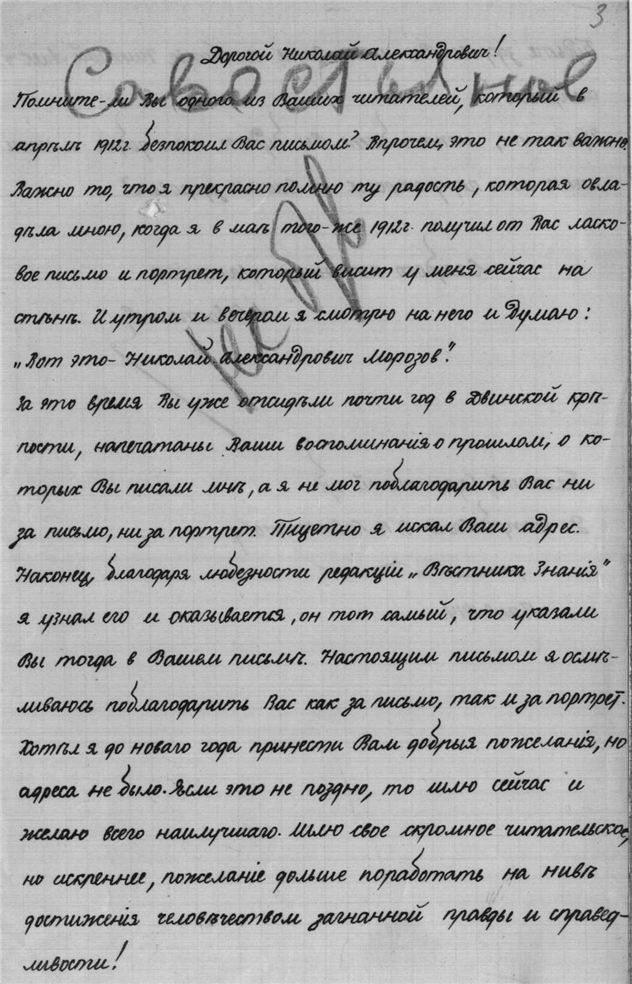 3
Дорогой Николай Александрович!
Помните-ли Вы одного из Ваших читателей, который в
апрѣлѣ 1912г. безпокоил Вас письмом? Впрочем, это не так важно.
Важно то, что я прекрасно помню ту радость, которая овла-
дѣла мною, когда я в маѣ того-же 1912г. получил от Вас ласко-
вое письмо и портрет, который висит у меня сейчас на
стѣнѣ. И утром и вечером я смотрю на него и думаю:
„Вот это - Николай Александрович Морозов".
За это время Вы уже отсидѣли почти год в Двинской крѣ-
пости, напечатаны Ваши воспоминанія о прошлом, о ко-
торых Вы писали мнѣ, а я не мог поблагодарить Вас ни
за письмо, ни за портрет. Тщетно я искал Ваш адрес.
Наконец, благодаря любезности редакціи „Вѣстника Знанія"
я узнал его и оказывается, он тот самый, что указали
Вы тогда в Вашем письмѣ. Настоящим письмом я осмѣ-
ливаюсь поблагодарить Вас как за письмо, так и за портрет.
Хотѣл я до новаго года принести Вам добрыя пожеланія, но
адреса не было. Если это не поздно, то шлю сейчас и
желаю всего наилучшаго. Шлю свое скромное читательское,
но искреннее, пожеланіе дольше поработать на нивѣ
достиженія человѣчеством загнанной правды и справед-
ливости!